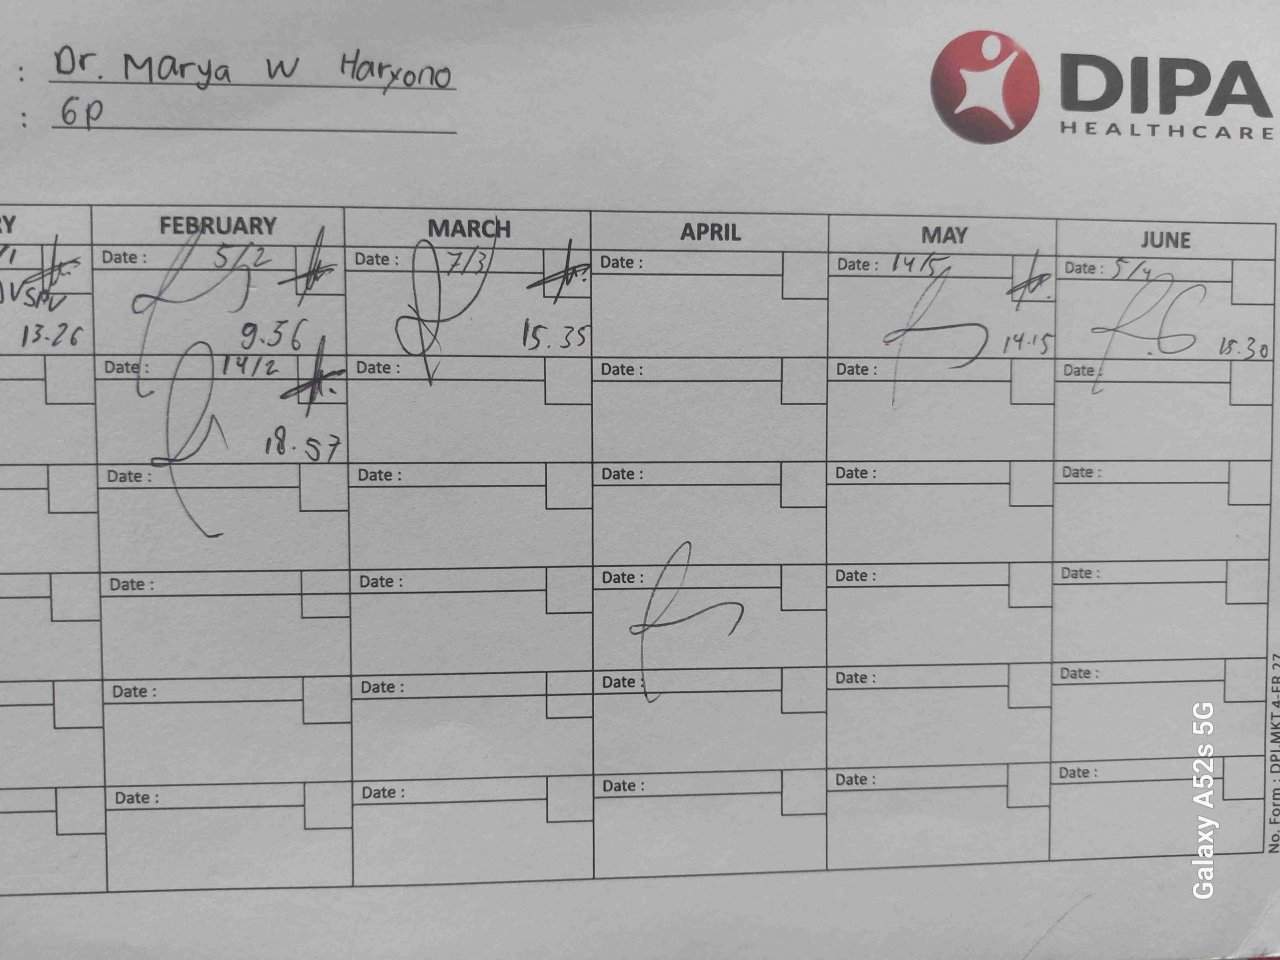 : Dr. Marya W Haryono
: GP
DIPA
HEALTHCARE
RY FEBRUARY MARCH APRIL MAY JUNE
/1 Date : 5/2 Date : 7/3 Date : Date : 14/5 Date :
SPV
13.26 9.56 15.35 14.15 15.30
Date : 14/2 Date : Date : Date : Date :
18.57
Date : Date : Date : Date : Date :
Date : Date : Date : Date : Date :
Date : Date : Date : Date : Date :
Date : Date : Date : Date : Date :
No. Form : DPI.MKT.4-FR.27
Galaxy A52s 5G